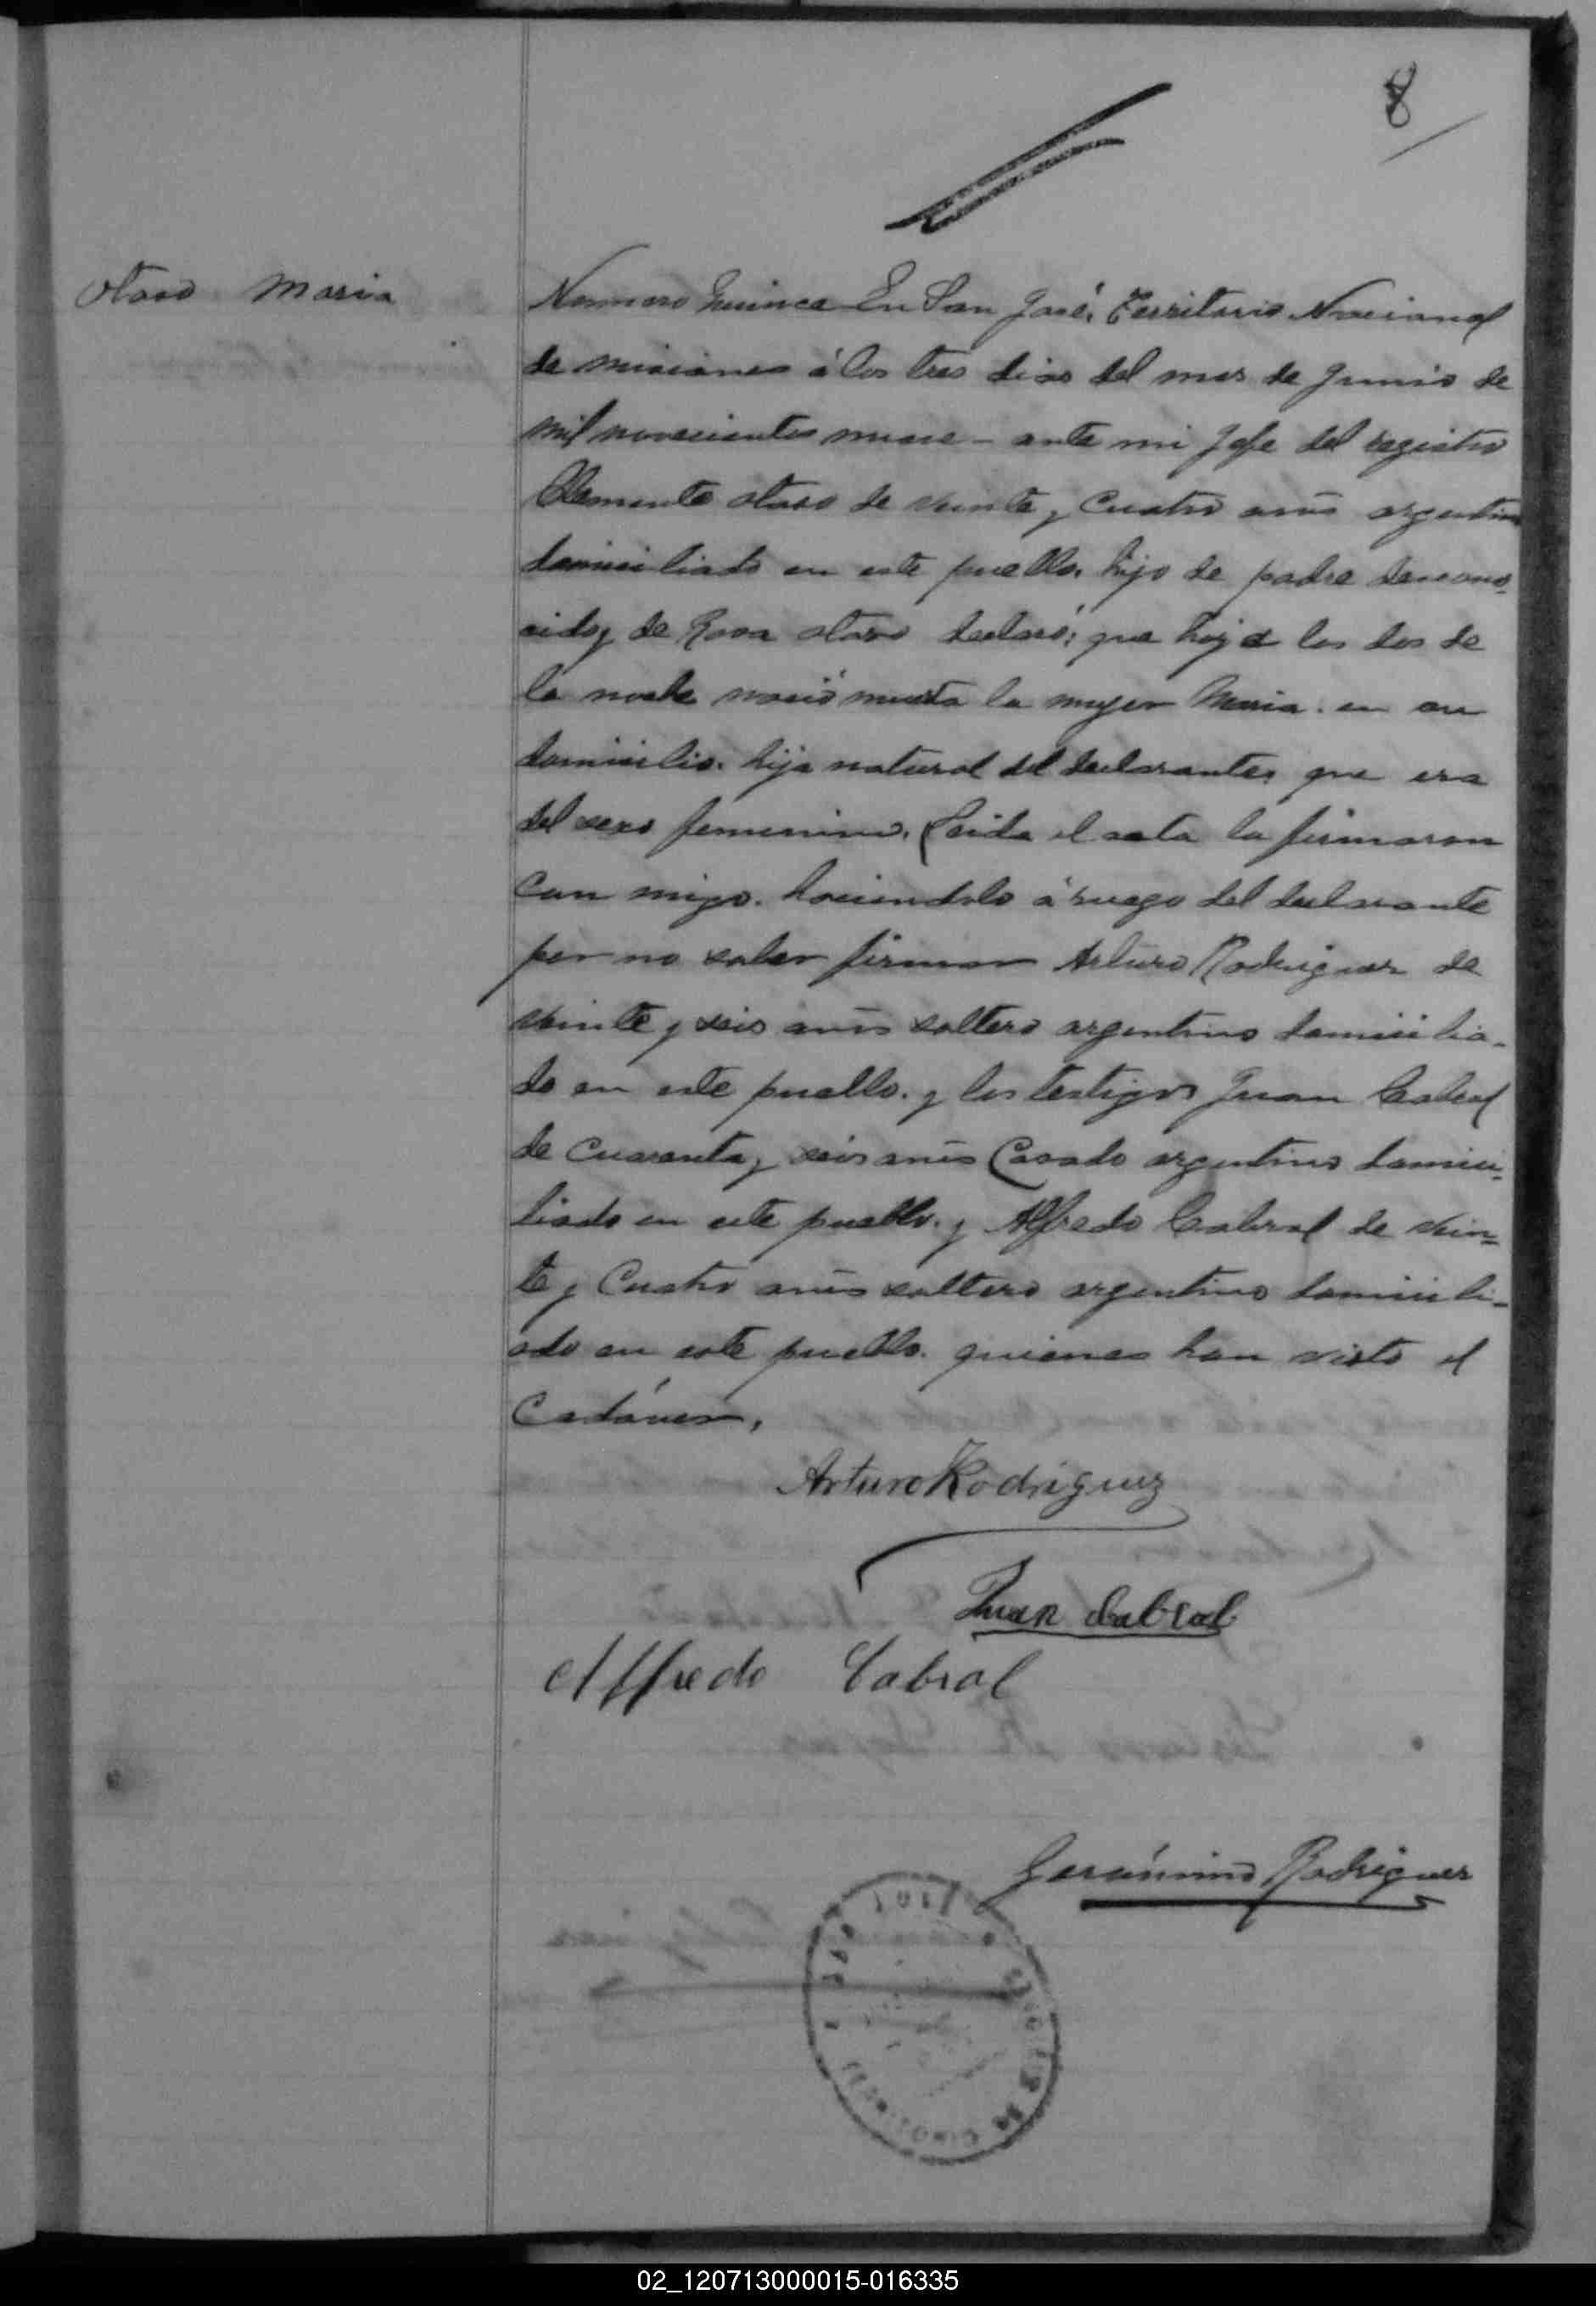 8
Otaso Maria
Numero Quince En San José, Territorio Nacional
de misiones á los tres dias del mes de Junio de
mil novecientos nueve - ante mi Jefe del registro
Clemente otaso de veinte y Cuatro años argentino
domiciliado en este pueblo. hijo de padre descono-
cido y de Rosa otaso declaró: que hoy a las dos de
la noche nació muerta la mujer Maria. en su
domicilio. hija natural del declarante; que era
del sexo femenino. Leida el acta la firmaron
con migo. haciendolo á ruego del declarante
por no saber firmar Arturo Rodriguez de
veinte y seis años soltero argentino domicilia-
do en este pueblo. y los testigos Juan Cabral
de Cuarenta y seis años Casado argentino domici-
liado en este pueblo. y Alfredo Cabral de Vein-
te y Cuatro años soltero argentino domicili-
ado en este pueblo. quienes han visto el
Cadáver.
Arturo Rodriguez
Juan Cabral
Alfredo Cabral
Gerónimo Rodriguez
TERRITORIO DE
02_120713000015-016335